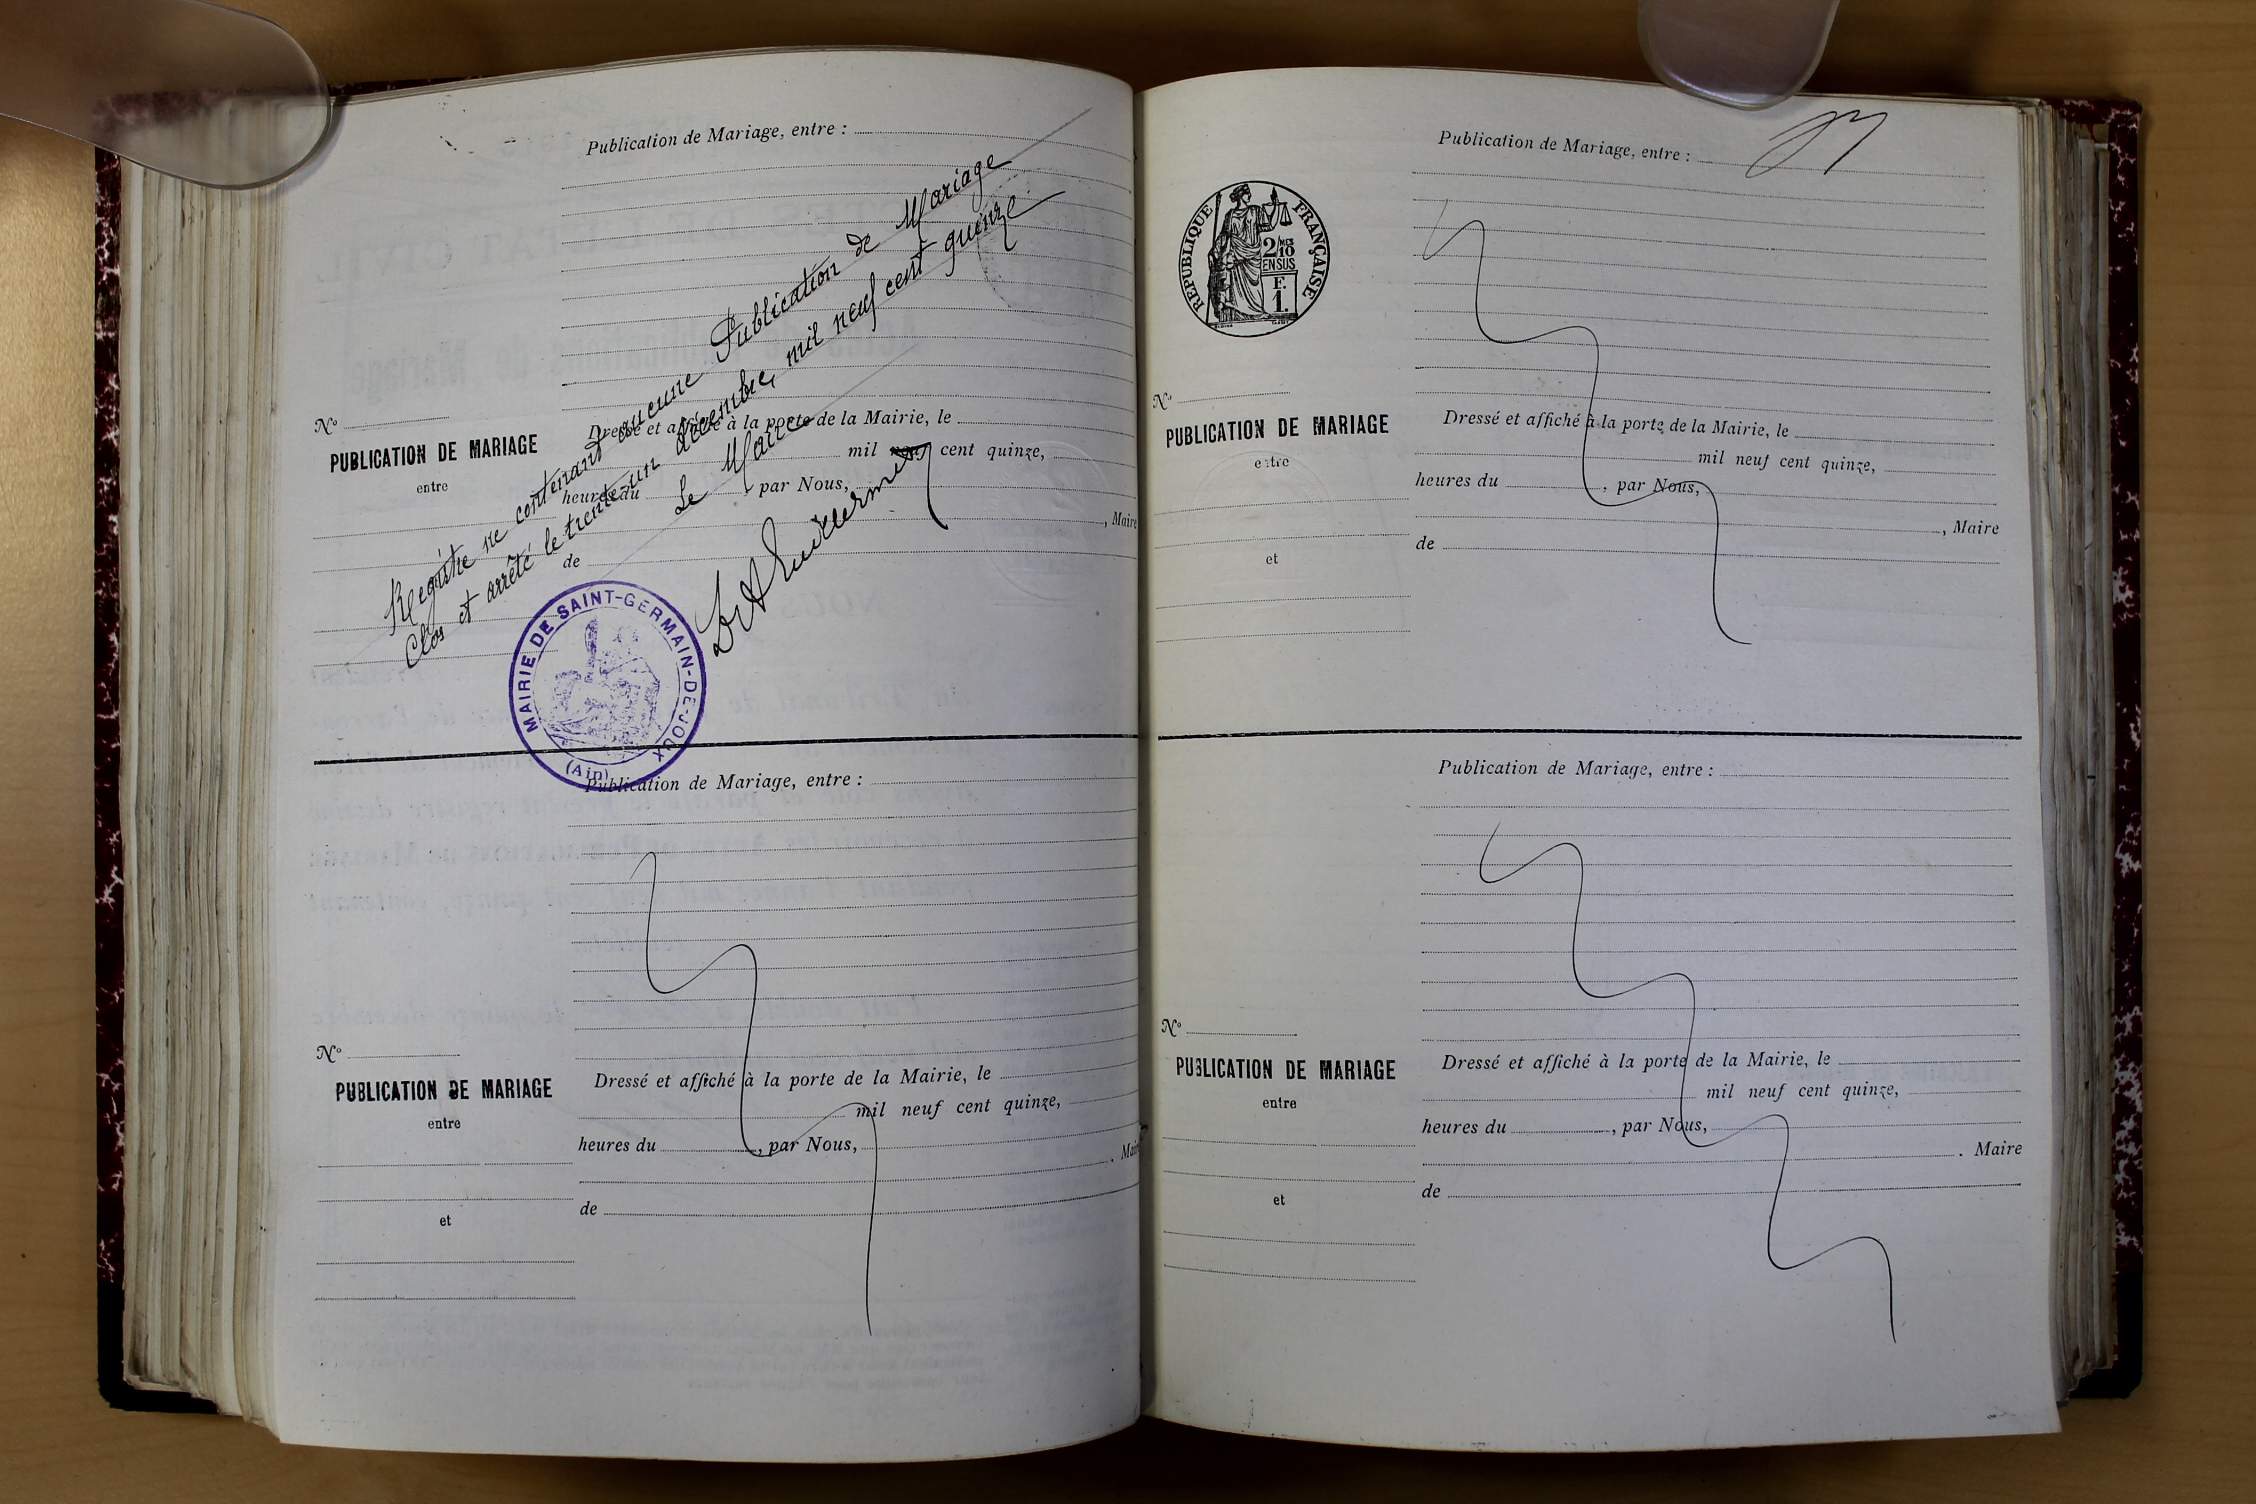 Publication de Mariage, entre :
Registre ne contenant aucune Publication de Mariage
Clos et arrêté le trente-un décembre, mil neuf cent quinze
Le Maire
Nº
PUBLICATION DE MARIAGE
entre
et
Dressé et affiché à la porte de la Mairie, le
mil neuf cent quinze,
heures du , par Nous,
, Maire
de
MAIRIE DE SAINT-GERMAIN-DE-JOUX
(Ain)
Publication de Mariage, entre :
Nº
PUBLICATION DE MARIAGE
entre
et
Dressé et affiché à la porte de la Mairie, le
mil neuf cent quinze,
heures du , par Nous,
. Maire
de
Publication de Mariage, entre :
RÉPUBLIQUE FRANÇAISE
2/MES 10
EN SUS
F.
1.
Nº
PUBLICATION DE MARIAGE
entre
et
Dressé et affiché à la porte de la Mairie, le
mil neuf cent quinze,
heures du , par Nous,
, Maire
de
Publication de Mariage, entre :
Nº
PUBLICATION DE MARIAGE
entre
et
Dressé et affiché à la porte de la Mairie, le
mil neuf cent quinze,
heures du , par Nous,
. Maire
de